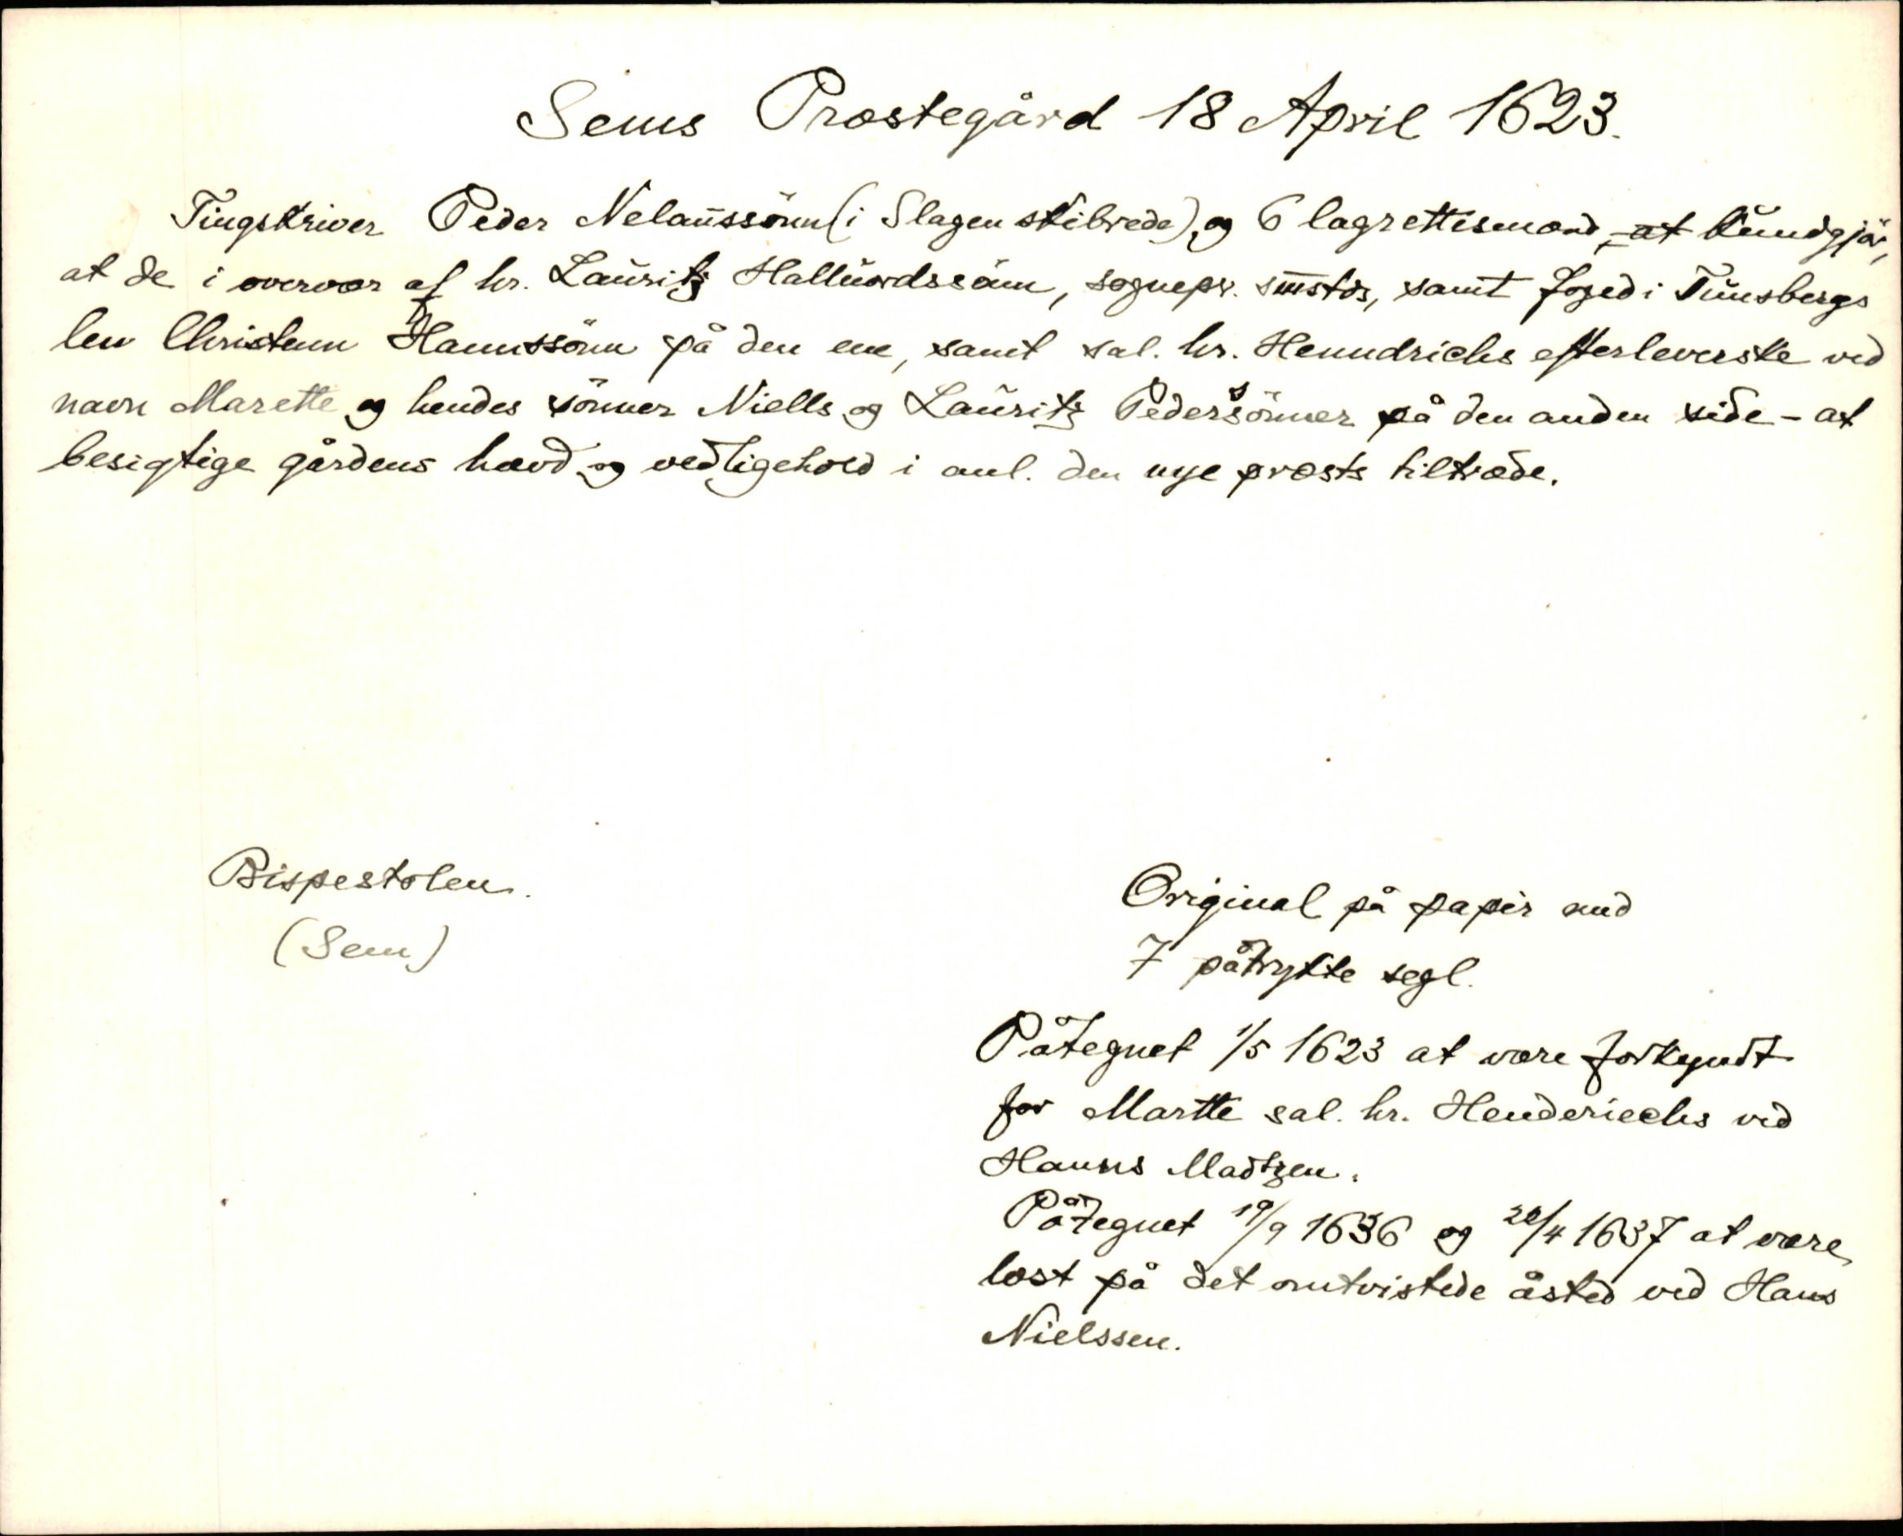 Sems Præstegård 18 April 1623.
Tingskriver Peder Nelaŭssönn (i Slagen skibrede), og 6 lagrettismænd, - at kŭndgjör,
at de i overvær af hr. Laŭritz Hallŭordssönn, sognepr. smstds, samt foged i Tŭnsbergs
len Christenn Hannssönn på den ene, samt sal. hr. Henndrichs efterleverske ved
navn Marette og hendes sönner Niells og Laŭritz Pederssönner på den anden side - at
besigtige gårdens hævd og vedligehold i anl. den nye præsts tiltræde.
Bispestolen.
(Sem)
Original på papir med
7 påtrykte segl.
Påtegnet 1/5 1623 at være forkyndt
for Martte sal. hr. Henderiechs ved
Hanns Madtzen.
Påtegnet 19/9 1636 og 28/4 1637 at være
læst på det omtvistede åsted ved Hans
Nielssen.